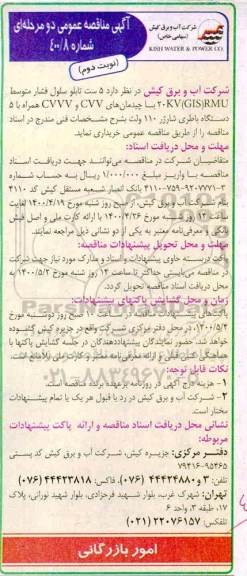 آگهی مناقصه عمومی دو مرحله‌ای
شماره ۴۰۰/۸
(نوبت دوم)
شرکت آب و برق کیش
(سهامی خاص)
KISH WATER & POWER CO.
شرکت آب و برق کیش در نظر دارد ۵ ست تابلو سلول فشار متوسط
۲۰KV(GIS)RMU با چیدمان‌های CVV و CVVV همراه با ۵
دستگاه باطری شارژر ۱۱۰ ولت بشرح مشخصات فنی مندرج در اسناد
مناقصه را از طریق مناقصه عمومی خریداری نماید.
مهلت و محل دریافت اسناد:
متقاضیان شرکت در مناقصه می‌توانند جهت دریافت اسناد
مناقصه با واریز مبلغ ۱/۰۰۰/۰۰۰ ریال به حساب شماره
۴۱۱۰-۷۵۹-۹۲۰۷۷۷۱-۳ بانک انصار شعبه مستقل کیش کد ۴۱۱۰
بنام شرکت آب و برق کیش، از صبح روز شنبه مورخ ۱۴۰۰/۴/۱۹ لغایت
ساعت ۱۲ روز شنبه مورخ ۱۴۰۰/۴/۲۶ با ارائه کارت ملی و اصل فیش
بانکی و معرفی‌نامه معتبر به یکی از دو نشانی ذیل مراجعه نمایند.
مهلت و تحویل پیشنهادات مناقصه:
پاکت دربسته حاوی پیشنهادات و اسناد و مدارک مورد نیاز جهت شرکت
در مناقصه می‌بایستی حداکثر تا ساعت ۱۴ روز شنبه مورخ ۱۴۰۰/۵/۲ به
محل دریافت اسناد مناقصه تحویل گردد.
زمان و محل گشایش پاکتهای پیشنهادات:
پاکتهای پیشنهاد مناقصه از ساعت ۱۰ صبح روز دوشنبه مورخ
۱۴۰۰/۵/۴، در محل دفتر مرکزی شرکت واقع در جزیره کیش گشوده
خواهد شد. حضور نمایندگان پیشنهاددهندگان در جلسه گشایش پاکتها با
هماهنگی کتبی قبلی و ارائه معرفی‌نامه معتبر و کارت ملی بلامانع است.
نکات قابل توجه:
۱- هزینه درج آگهی در روزنامه برعهده برنده مناقصه است.
۲- شرکت آب و برق کیش در رد یا قبول هر یک یا تمام پیشنهادات
مختار است.
نشانی محل دریافت اسناد مناقصه و ارائه پاکت پیشنهادات
مربوطه:
دفتر مرکزی: جزیره کیش، شرکت آب و برق کیش کد پستی
۷۹۴۱۶-۹۵۴۶۵
تلفن: ۳ و ۴۴۴۲۴۸۸۰ (۰۷۶)، فاکس: ۴۴۴۲۳۸۱۸ (۰۷۶)
تهران: شهرک غرب، بلوار شهید فرحزادی، بلوار شهید نورانی، پلاک
۱۷، طبقه ۳، واحد ۶
تلفکس: ۲۲۰۷۶۱۵۷ (۰۲۱)
امور بازرگانی
۰۲۱-۸۸۳۴۹۶۷۰